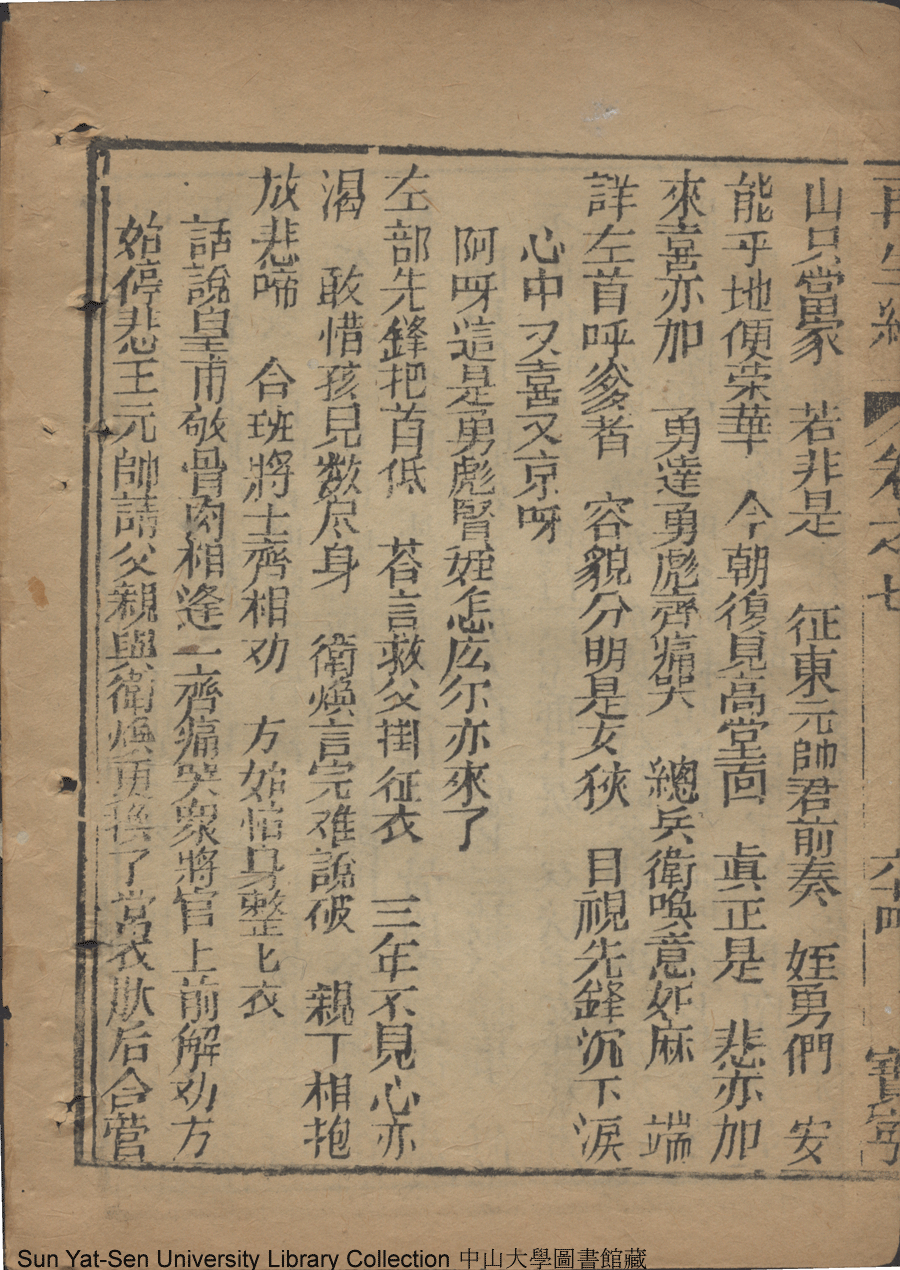 再生緣 卷之七 六十四 寶寧
山只當家 若非是 征東元帥君前奏 姪勇們 安
能乎地便荣華 今朝復見高堂面 眞正是 悲亦加
來喜亦加 勇達勇彪齊痛哭 總兵衛喚意如麻 端
詳左首呼爹者 容貌分明是女狹 目視先鋒沉下淚
心中又喜又京呀
阿呀這是勇彪賢姪怎庅尔亦來了
左部先鋒把首低 荅言救父掛征衣 三年不見心亦
渴 敢惜孩兒数尽身 衛煥言完难說破 親丁相抱
放悲啼 合班將士齊相劝 方始恬身整七衣
話說皇甫敬骨肉相逢一齊痛哭衆將官上前解劝方
始停悲王元帥請父親與衛煥更換了裳衣肰后合营
Sun Yat-Sen University Library Collection 中山大學圖書館藏